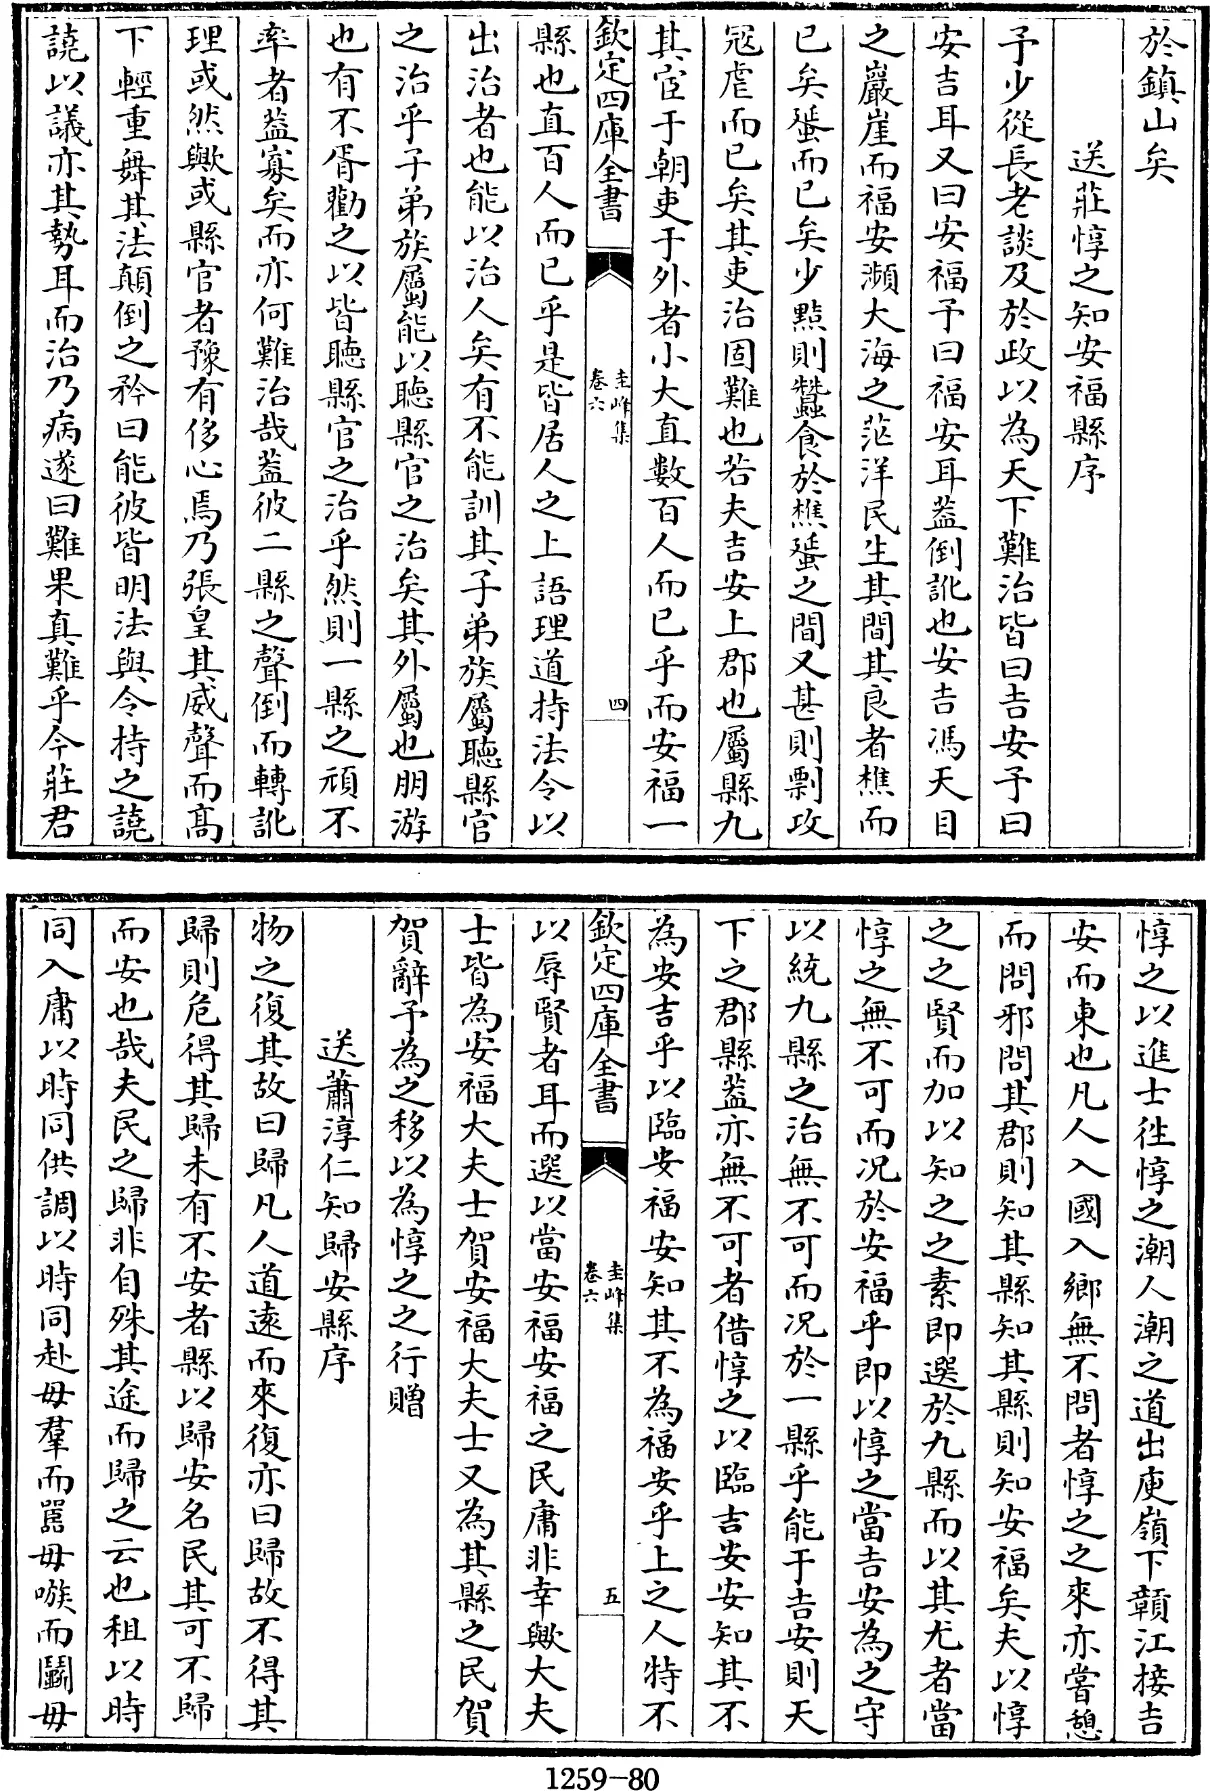 於鎮山矣
送莊惇之知安福縣序
予少從長老談及於政以為天下難治皆曰吉安予曰
安吉耳又曰安福予曰福安耳葢倒訛也安吉馮天目
之巖崖而福安瀕大海之茫洋民生其間其良者樵而
已矣蜑而已矣少黠則蠶食於樵蜑之間又甚則剽攻
冦虐而已矣其吏治固難也若夫吉安上郡也屬縣九
其宦于朝吏于外者小大直數百人而已乎而安福一
欽定四庫全書
圭峰集
卷六
四
縣也直百人而已乎是皆居人之上語理道持法令以
出治者也能以治人矣有不能訓其子弟族屬聽縣官
之治乎子弟族屬能以聽縣官之治矣其外屬也朋游
也有不胥勸之以皆聽縣官之治乎然則一縣之頑不
率者葢寡矣而亦何難治哉葢彼二縣之聲倒而轉訛
理或然歟或縣官者豫有侈心焉乃張皇其威聲而髙
下輕重舞其法顛倒之矜曰能彼皆明法與令持之譊
譊以議亦其勢耳而治乃病遂曰難果真難乎今莊君
惇之以進士徃惇之潮人潮之道出庾嶺下贛江接吉
安而東也凡人入國入鄉無不問者惇之之來亦嘗憩
而問邪問其郡則知其縣知其縣則知安福矣夫以惇
之之賢而加以知之之素即選於九縣而以其尤者當
惇之無不可而况於安福乎即以惇之當吉安為之守
以統九縣之治無不可而况於一縣乎能于吉安則天
下之郡縣葢亦無不可者借惇之以臨吉安安知其不
為安吉乎以臨安福安知其不為福安乎上之人特不
欽定四庫全書
圭峰集
卷六
五
以辱賢者耳而選以當安福安福之民庸非幸歟大夫
士皆為安福大夫士賀安福大夫士又為其縣之民賀
賀辭予為之移以為惇之之行贈
送蕭淳仁知歸安縣序
物之復其故曰歸凡人道遠而來復亦曰歸故不得其
歸則危得其歸未有不安者縣以歸安名民其可不歸
而安也哉夫民之歸非自殊其途而歸之云也租以時
同入庸以時同供調以時同赴毋羣而嚚毋嗾而鬭毋
1259-80